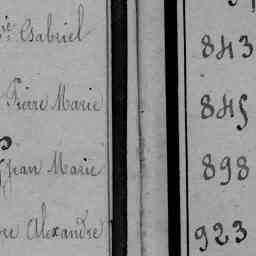 Gabriel 843
Pierre Marie 845
Jean Marie 898
re Alexandre 923